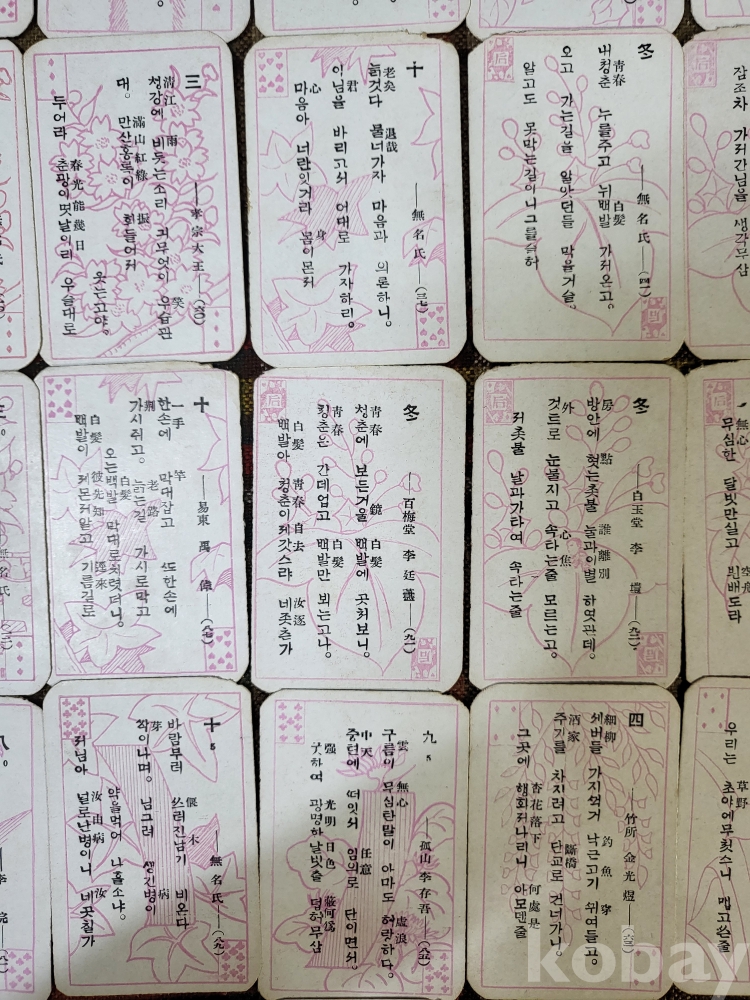 三
청강에 비듯는소리 긔무엇이 우습관
대。 만산홍록이 휘들어져
웃는고야。
두어라 춘풍이몃날이리 우슬대로
清江 雨
滿山紅綠 振
笑
春光能幾日
——孝宗大王——
十
늙것다 물너가자 마음과 의론하니。
이님을 바리고쇠 어대로 가자하리。
마음아 너란잇거라 몸이몬저
老矣 退哉
君
心 身
——無名氏——(三七)
冬
내청춘 누를주고 뉘백발 가져온고。
오고 가는길을 알앗던들 막을거슬。
알고도 못막는길이니그를슬허
青春 白髮
——無名氏——(四一)
잠조차 가져간님을 생각무삼
十
한손에 막대잡고 또한손에
가시쥐고。 늙는길 가시로막고
오는백발 막대로치렷더니。
백발이 제몬저알고 기름길로
一手 竿
荆 老路
白髮
白髮 彼先知 逕來
——易東 禹倬——(八七)
冬
청춘에 보든거울 백발에 곳쳐보니。
청춘은 간데업고 백발만 뵈는고나。
백발아 청춘이제갓스랴 네좃츤가
青春 鏡 白髮
青春 白髮
白髮 青春自去 汝逐
——百梅堂 李廷藎——(九一)
冬
방안에 혓는촛불 눌과이별 하엿관데。
것트로 눈물지고 속타는줄 모르는고。
저촛불 날과가타여 속타는줄
房 點 誰離別
外 心焦
——白玉堂 李塏——
무심한 달빗만실고 뷘배도라
無心 空舟
十
바람부러 쓰러진남기 비온다
싹이나며。 님그려 생긴병이
약을먹어 나흘소냐。
저님아 널로난병이니 네곳칠가
偃木
芽 病
汝由病 汝
——無名氏——(八九)
九
구름이 무심한말이 아마도 허랑하다。
중텬에 떠잇쇠 임의로 단이면쇠。
굿하여 광명한날빗츨 덥허무삼
雲 無心 虛浪
中天 任意
强 光明日色 蔽何爲
——孤山 李存吾——(八五)
四
세버들 가지썩거 낙근고기 뀌여들고。
주가를 차지려고 단교로 건너가니。
그곳에 행화져나리니 아모덴줄
細柳 釣魚穿
酒家 斷橋
杏花落下 何處是
——竹所 金光煜——
우리는 초야에무첫스니 맵고쓴줄
草野
kopay